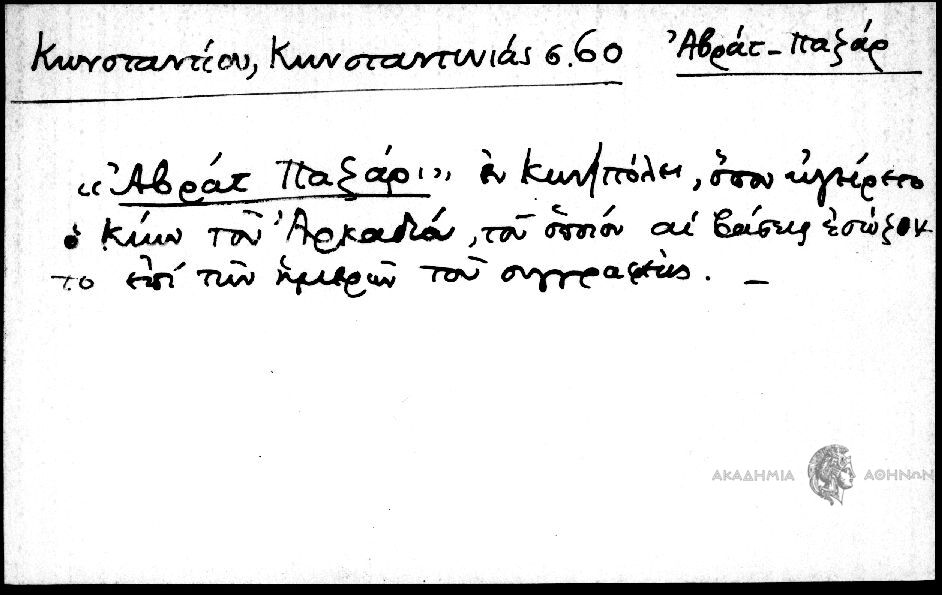 Κωνσταντίου, Κωνσταντινιάς σ.60 Ἀβράτ-Παζάρ
«Ἀβράτ Παζάρι» ἐν Κων/πόλει, ὅπου ἠγείρετο
ὁ κίων τοῦ Ἀρκαδίου, τοῦ ὁποίου αἱ βάσεις ἐσώζον-
το ἐπί τῶν ἡμερῶν τοῦ συγγραφέως. –
ΑΚΑΔΗΜΙΑ ΑΘΗΝΩΝ